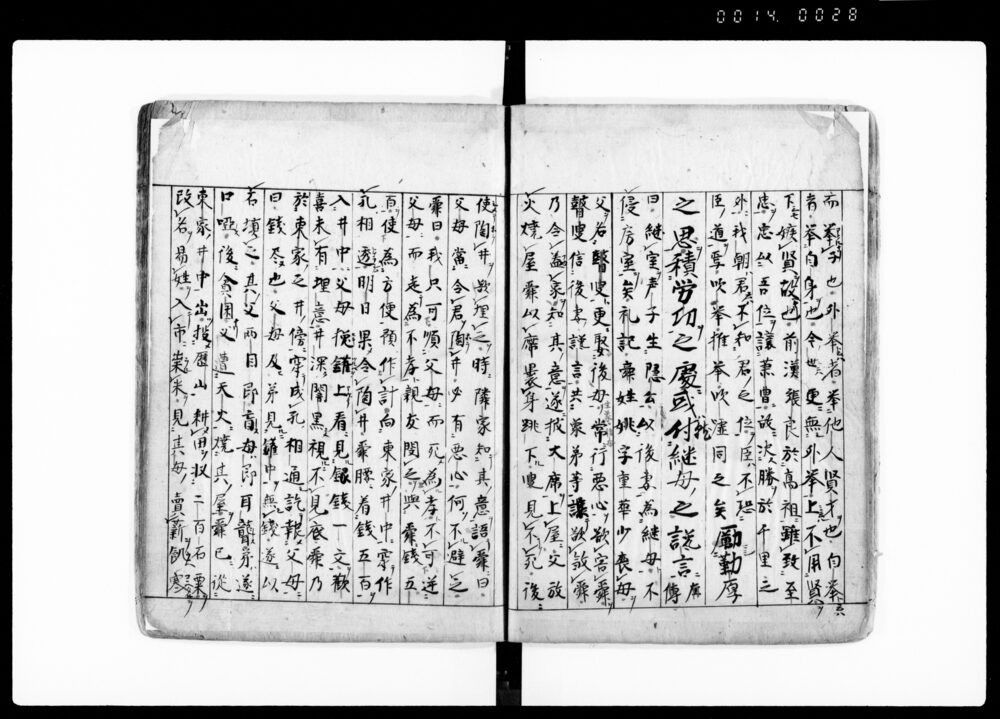 0014. 0028
而挙子也外挙者挙他人賢才也自挙
者挙自身也今世更無外挙上不用賢
下嫉賢故也前漢張良於高祖雖致至
忠忠以吾位譲東曹故決勝於千里之
外我朝君不知君之位臣不恐
臣道要吹挙推挙吹濫同之矣勵勤厚
之思積労功之處或付継母之讒言
左傳曰継室声子生隠公以後妻為継母不
侵房室矣礼記舜姓姚字重華少喪母
父名瞽叟更娶後母常行悪心欲害舜
瞽叟信後妻謹言共象弟等讓欲殺舜
乃令蓋家知其意遂披大席上屋父放
火焼屋舜以席裹身跳下叟見不死後
使陶井欲埋之時隣家知其意語舜曰
父母當令君陶井必有悪心何不避之
舜曰我只可順父母而死為孝不可逆
父母而走為不孝親友聞之與舜錢五
百使為方便預作計向東家井中穿作
孔相透明日果令陶井舜腰着錢五百
入井中父母挽鑵上看見銀錢一文歓
喜未有埋意井深闇黒視不見底舜乃
於東家之井傍穿成孔相通訖報父母
曰錢尽也父母及弟見鑵中無錢遂以
石填之其父両目即盲母即耳聾弟遂
口唖後貧困又遭天火焼其屋舜已従
東家井中出投歴山耕田収二百石粟
改名易姓入市糶米見其母賣薪飢寒